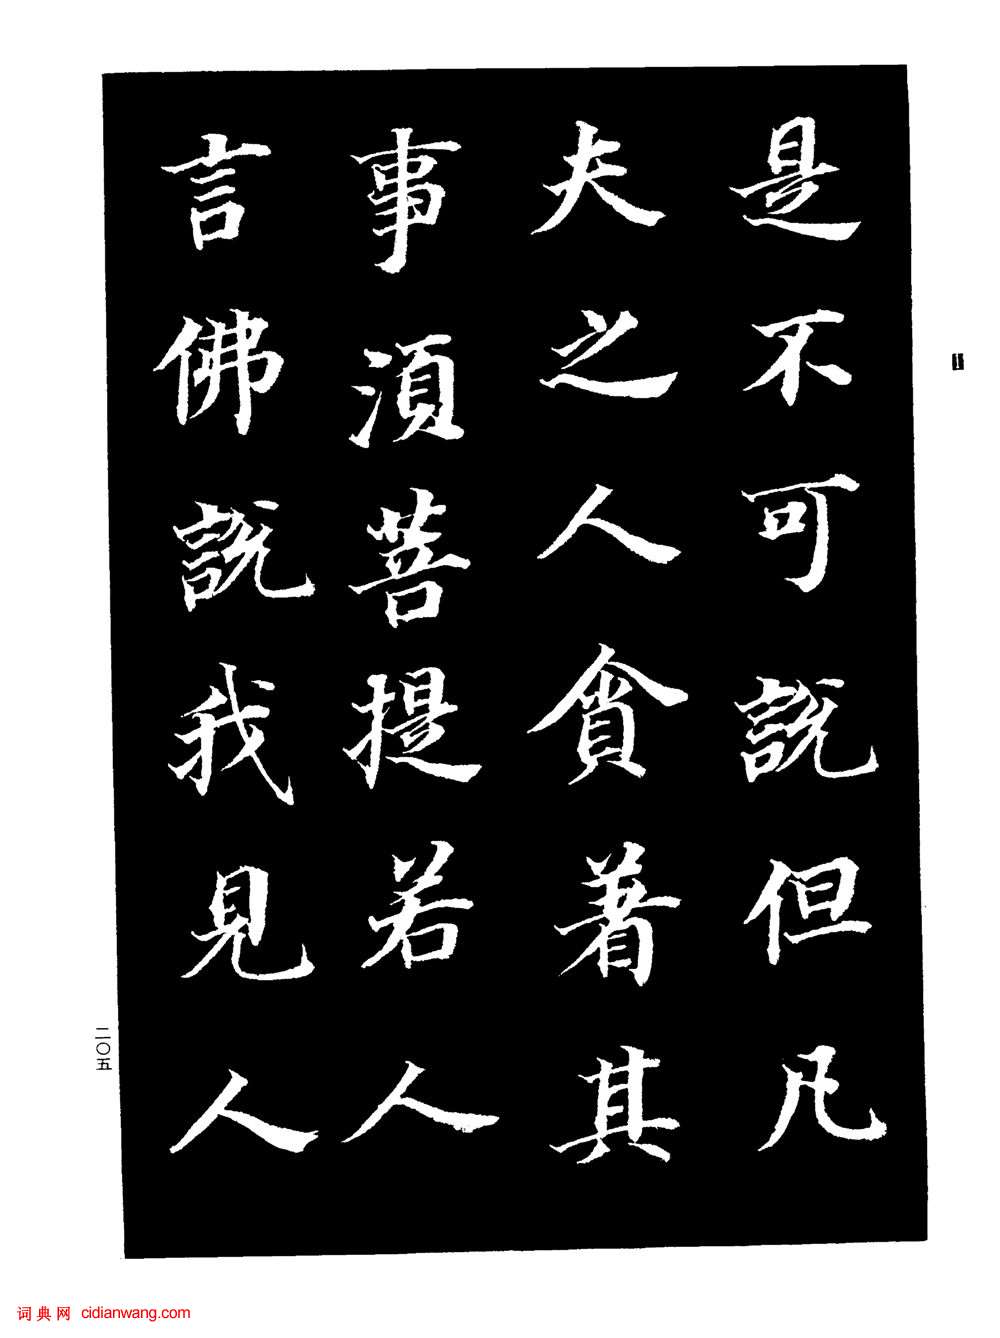 是不可說但凡
夫之人貪著其
事須菩提若人
言佛說我見人
二〇五
词典网 cidianwang.com